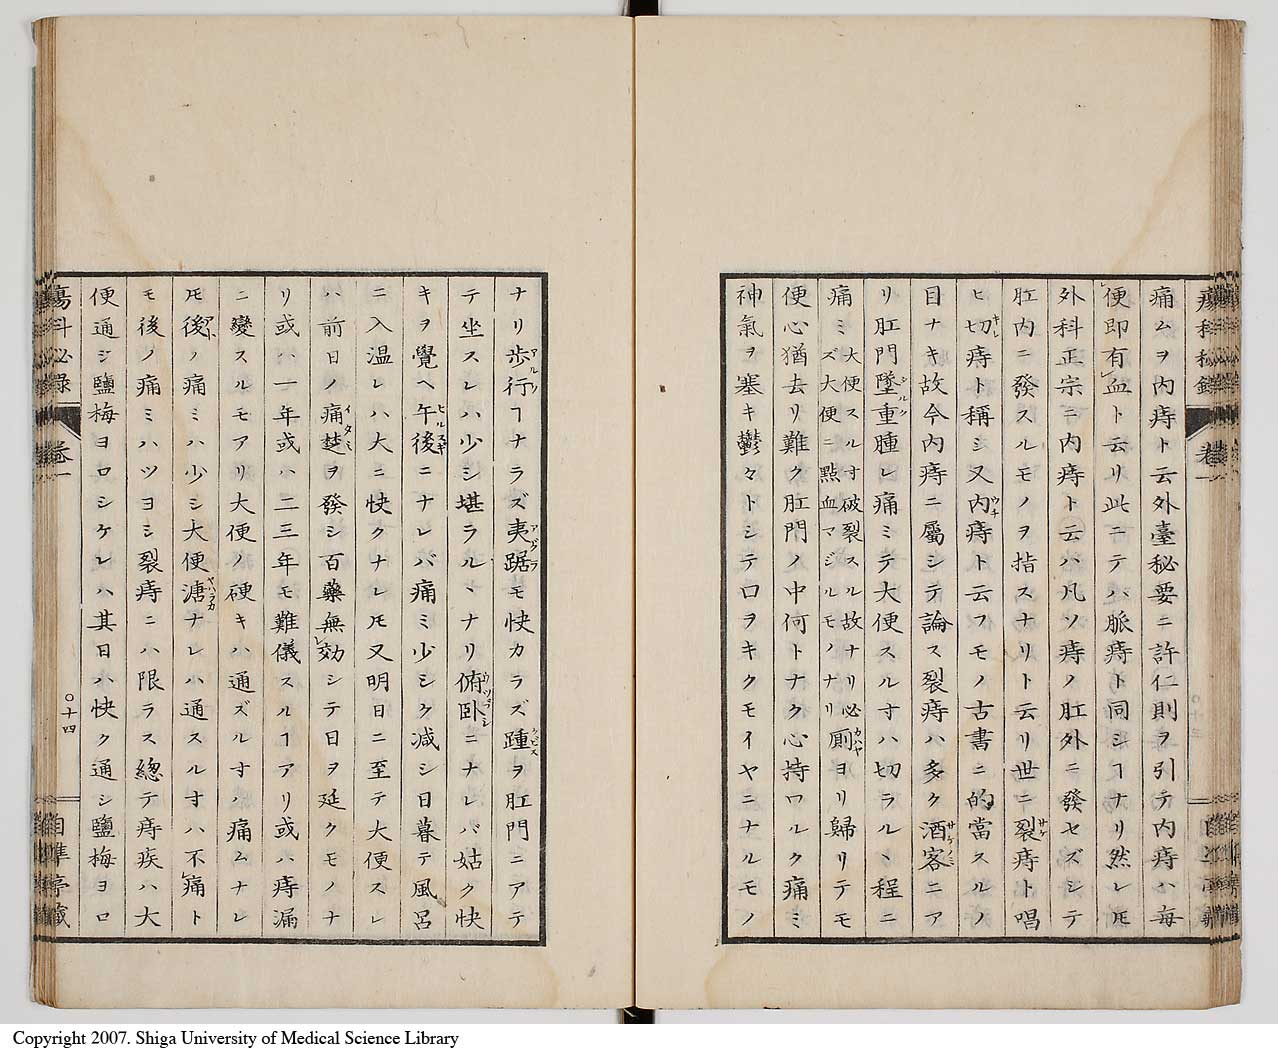 瘍科秘録 卷一
痛ムヲ内痔ト云外臺秘要ニ許仁則ヲ引テ内痔ハ毎
便即有血ト云リ此ニテハ脈痔ト同シヿナリ然レ𪜈
外科正宗ニ内痔ト云ハ凡ソ痔ノ肛外ニ發セズシテ
肛内ニ發スルモノヲ指スナリト云リ世ニ裂痔ト唱
ヒ切痔ト稱シ又内痔ト云フモノ古書ニ的當スルノ
目ナキ故今内痔ニ屬シテ論ス裂痔ハ多ク酒客ニア
リ肛門墜重腫レ痛ミテ大便スル寸ハ切ラルヽ程ニ
痛ミ大便スル寸破裂スル故ナリ必厠ヨリ歸リテモ
ズ大便ニ點血マジルモノナリ
便心猶去リ難ク肛門ノ中何トナク心持ワルク痛ミ
神氣ヲ塞キ鬱々トシテ口ヲキクモイヤニナルモノ
ナリ歩行ヿナラズ夷踞モ快カラズ踵ヲ肛門ニアテ
テ坐スレハ少シ堪ラルヽナリ俯臥ニナレバ姑ク快
キヲ覺ヘ午後ニナレバ痛ミ少シク減シ日暮テ風呂
ニ入温レハ大ニ快クナレ𪜈又明日ニ至テ大便スレ
ハ前日ノ痛楚ヲ發シ百藥無レ効シテ日ヲ延クモノナ
リ或ハ一年或ハ二三年モ難儀スルヿアリ或ハ痔漏
ニ變スルモアリ大便ノ硬キハ通ズル寸ハ痛ムナレ
𪜈後ノ痛ミハ少シ大便溏ナレハ通スル寸ハ不痛ト
モ後ノ痛ミハツヨシ裂痔ニハ限ラス總テ痔疾ハ大
便通シ鹽梅ヨロシケレハ其日ハ快ク通シ鹽梅ヨロ
瘍科秘録 卷一 〇十四 自準亭藏